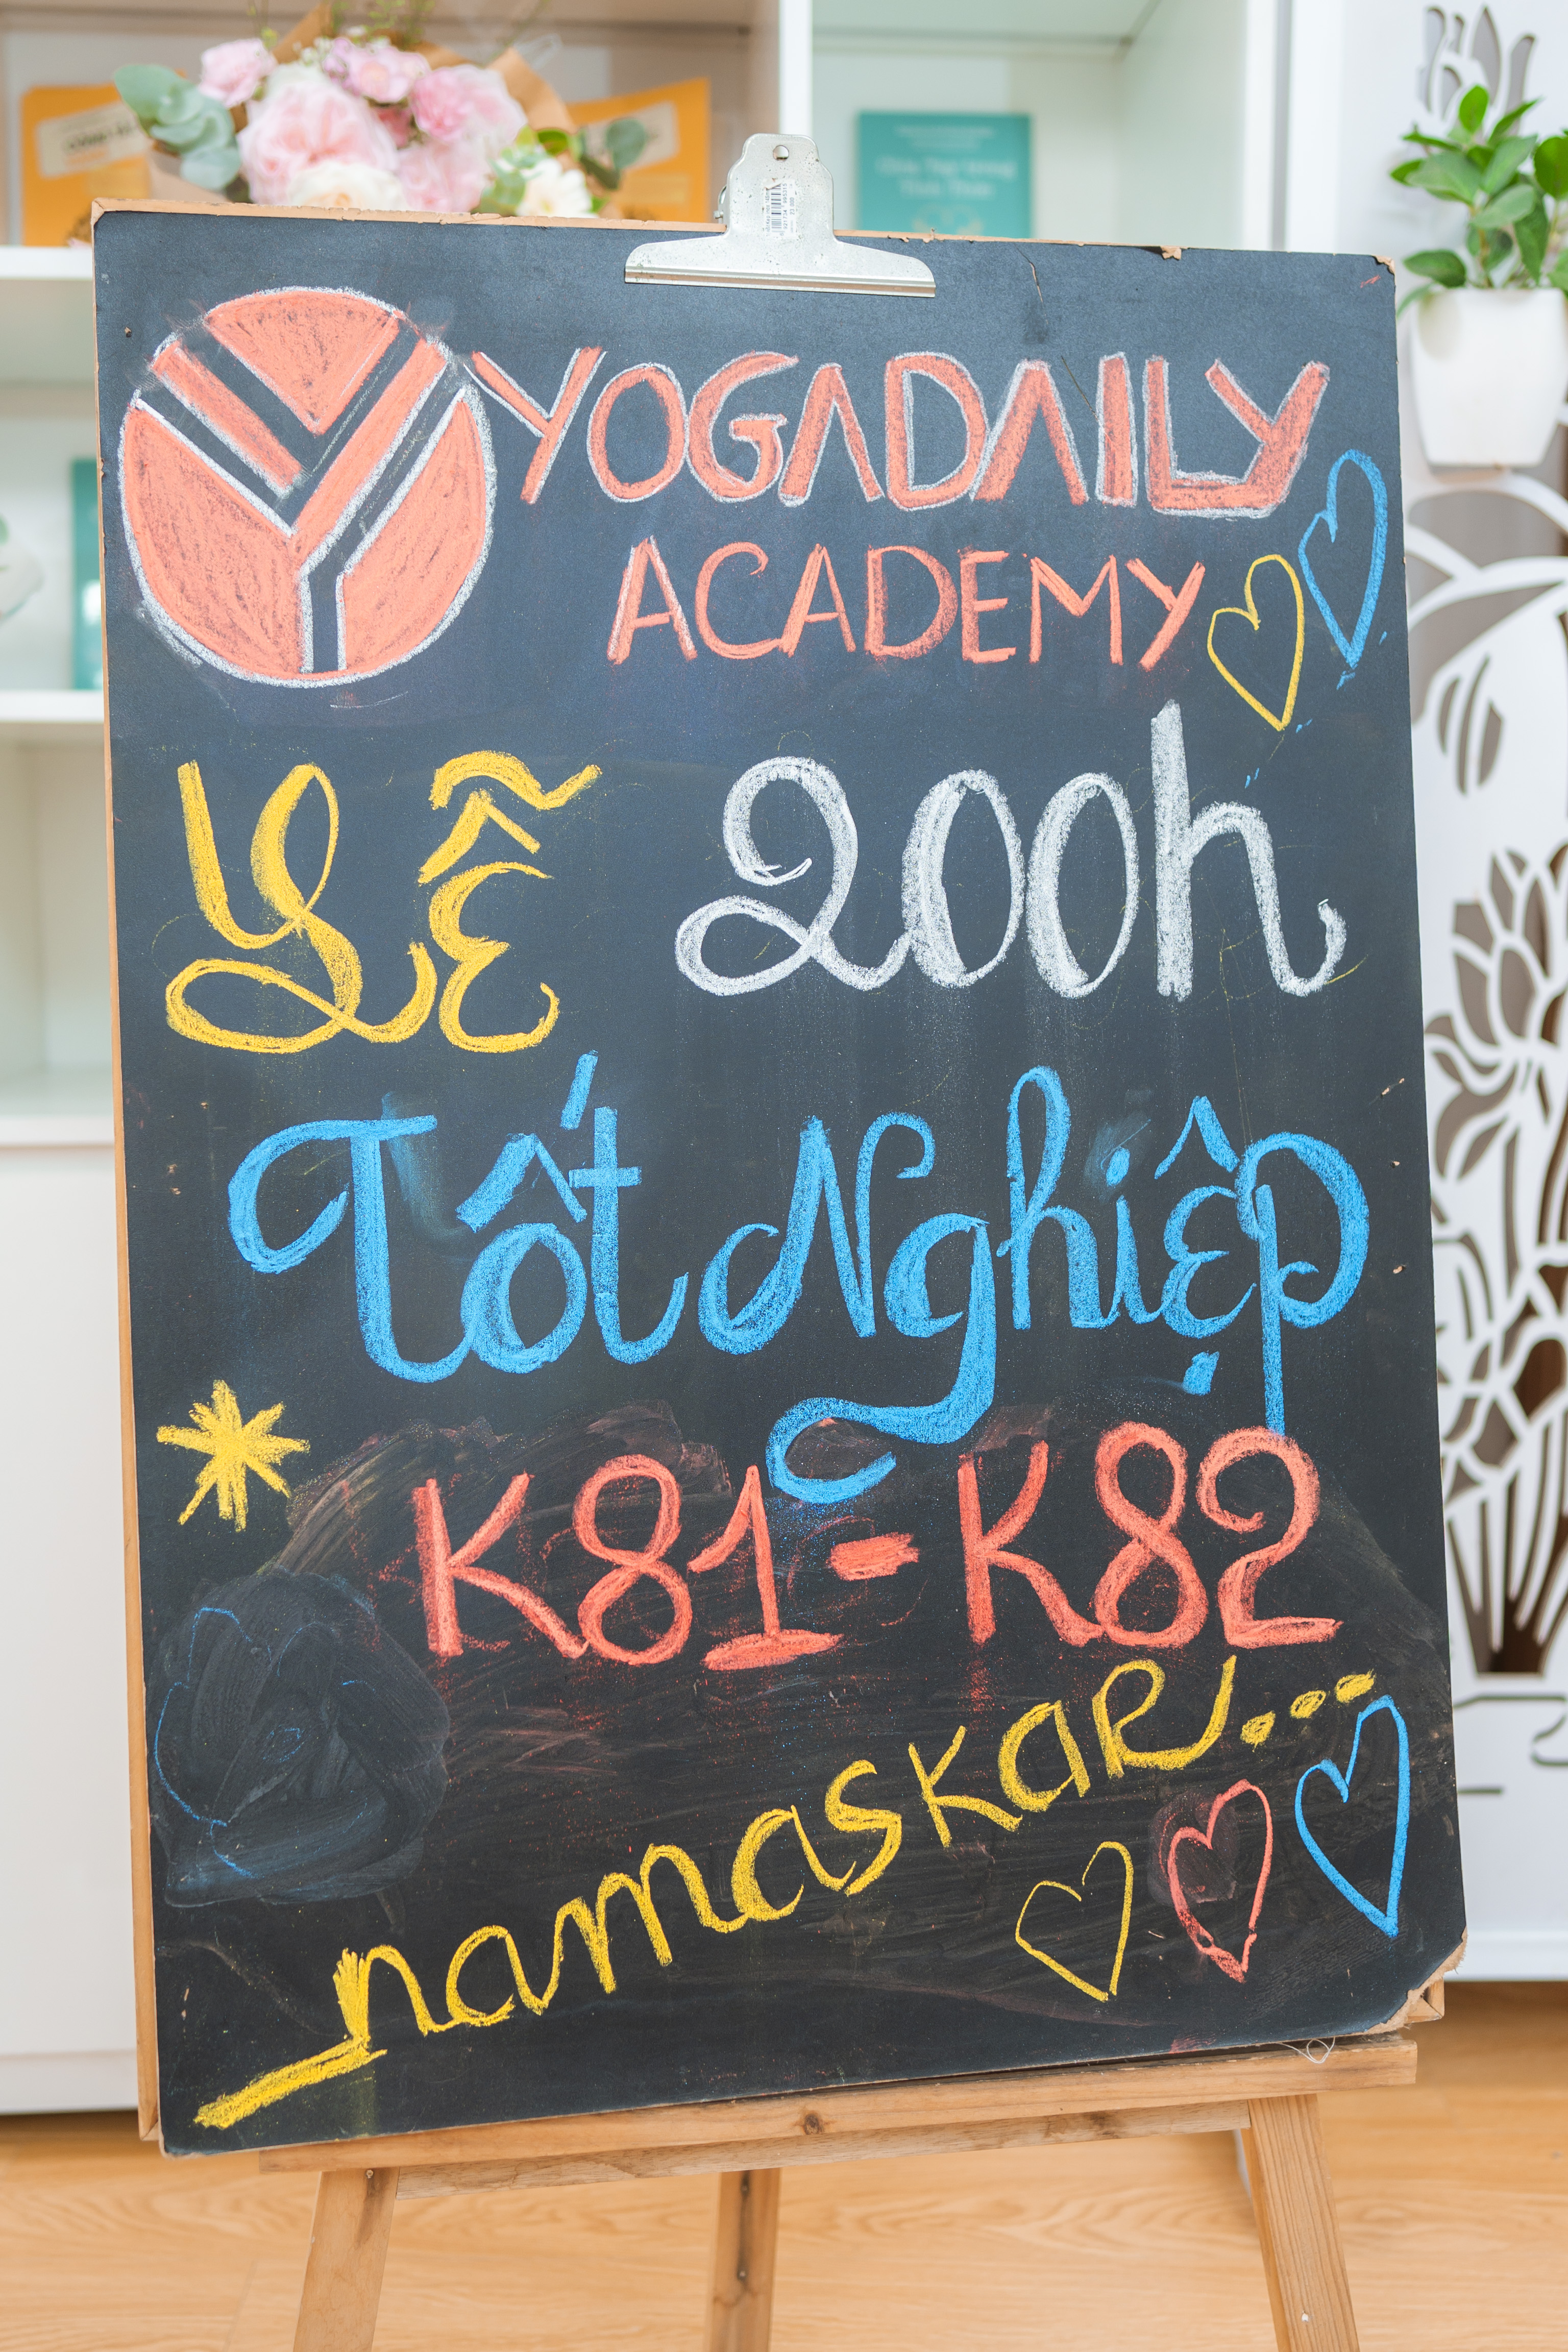 YOGADAILY
ACADEMY
Lễ 200h
Tốt Nghiệp
K81-K82
namaskar...